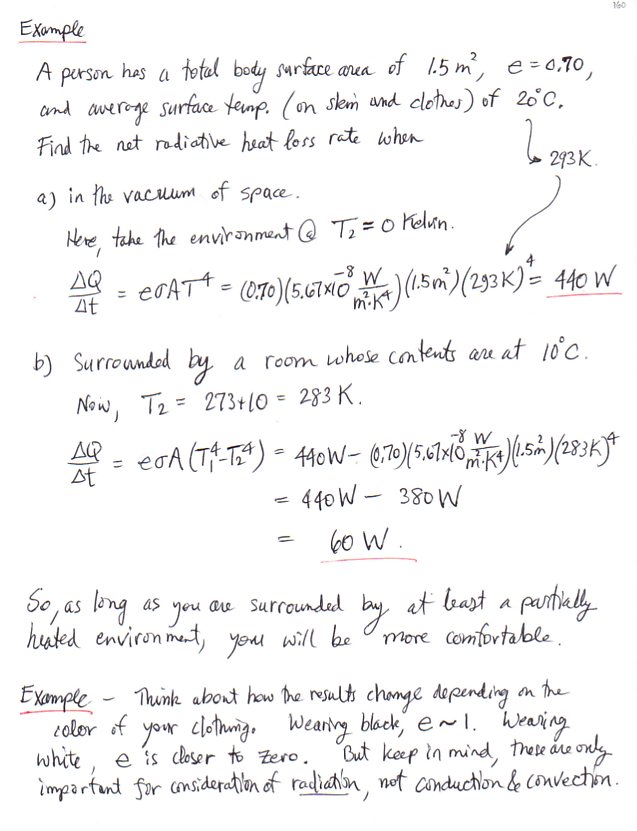 160
Example
A person has a total body surface area of 1.5 m², e = 0.70,
and average surface temp. (on skin and clothes) of 20°C.
Find the net radiative heat loss rate when
293 K.
a) in the vacuum of space.
Here, take the environment @ T₂ = 0 Kelvin.
ΔQ/Δt = eσAT⁴ = (0.70)(5.67×10⁻⁸ W/m²·K⁴)(1.5 m²)(293 K)⁴ = 440 W
b) Surrounded by a room whose contents are at 10°C.
Now, T₂ = 273+10 = 283 K.
ΔQ/Δt = eσA(T₁⁴-T₂⁴) = 440W - (0.70)(5.67×10⁻⁸ W/m²·K⁴)(1.5m²)(283K)⁴
= 440 W - 380 W
= 60 W.
So, as long as you are surrounded by at least a partially
heated environment, you will be more comfortable.
Example - Think about how the results change depending on the
color of your clothing. Wearing black, e ~ 1. Wearing
white, e is closer to zero. But keep in mind, these are only
important for consideration of radiation, not conduction & convection.